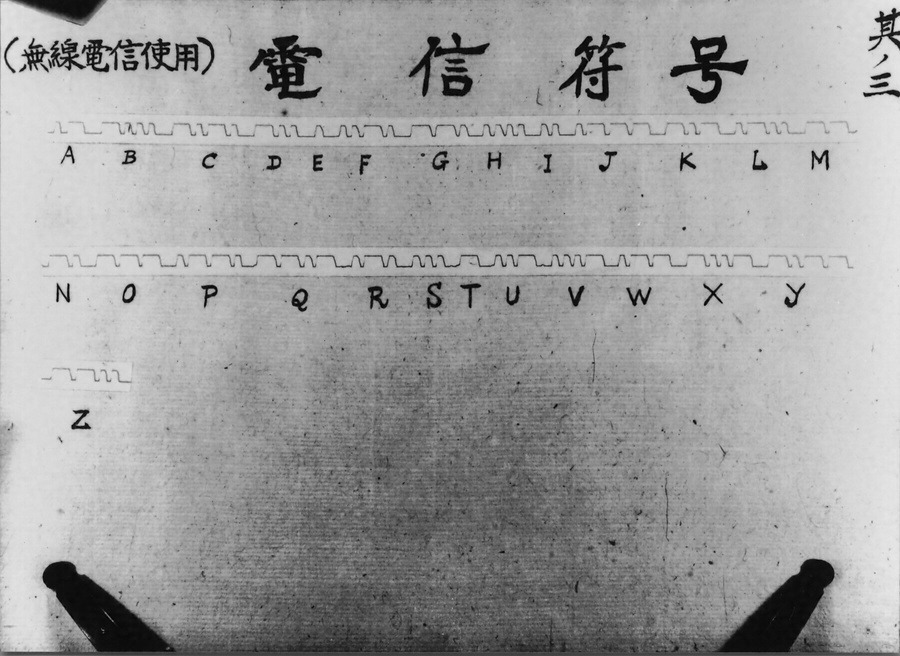 其ノ三
電信符号
(無線電信使用)
A B C D E F G H I J K L M
N O P Q R S T U V W X Y
Z